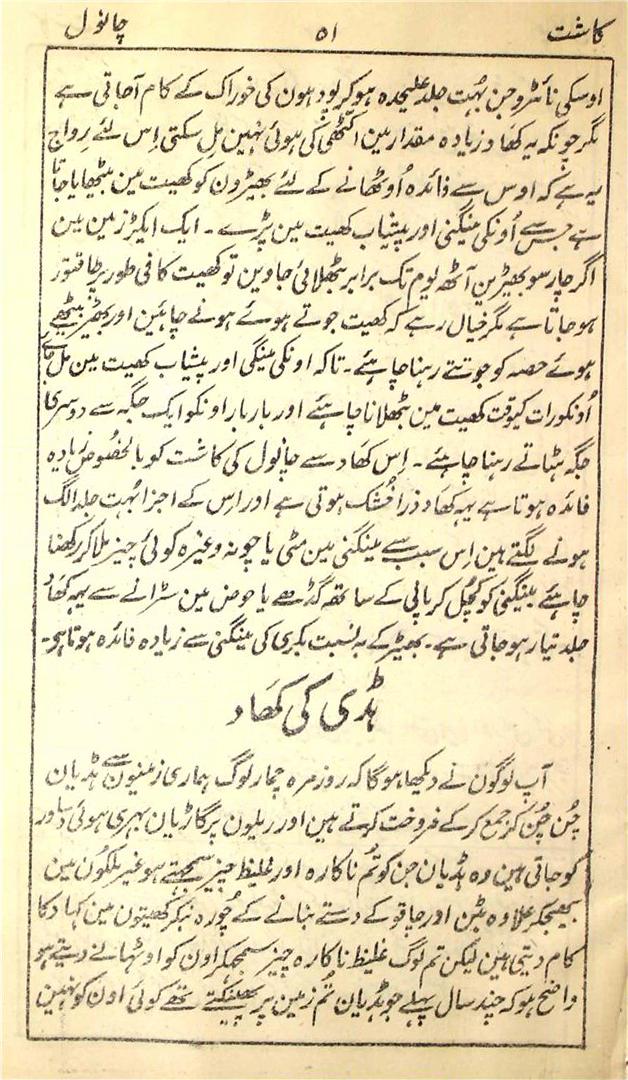 کاشت ۵۱ چانول
اوسکی نائٹروجن بہت جلد علیحدہ ہوکر پودہون کی خوراک کے کام آجاتی ہے
مگر چونکہ یہ کھاد زیادہ مقدار مین اکٹھی کی ہوئی نہین مل سکتی اِس لئے رواج
یہ ہے کہ اوس سے فائدہ اُوٹھانے کے لئے بھیڑون کو کھیت مین بٹھایا جاتا
ہے جس سے اُونکی مینگنی اور پیشاب کھیت مین پڑے ۔ ایک ایکڑ زمین مین
اگر چار سو بھیڑین آٹھ یوم تک برابر بٹھلائی جاوین تو کھیت کافی طور پر طاقتور
ہوجاتا ہے مگر خیال رہے کہ کھیت جوتے ہوئے ہونے چاہئین اور بھیڑ بیٹھے
ہوئے حصہ کو جوتتے رہنا چاہئے ۔ تاکہ اونکی مینگنی اور پیشاب کھیت مین مل جائے
اُونکو رات کیوقت کھیت مین بٹھلانا چاہئے اور بار بار اونکو ایک جگہ سے دوسری
جگہ ہٹاتے رہنا چاہئے ۔ اِس کھاد سے چانول کی کاشت کو بالخصوص زیادہ
فائدہ ہوتا ہے یہ کھاد ذرا خُشک ہوتی ہے اور اس کے اجزا بہت جلد الگ
ہونے لگتے ہین اِس سبب سے مینگنی مین مٹی یا چونہ وغیرہ کوئی چیز ملاکر رکھنا
چاہئے مینگنی کو کُچل کر پانی کے ساتھ گڈھے یا حوض مین سڑانے سے یہ کھاد
جلد تیار ہوجاتی ہے ۔ بھیڑ کے بہ نسبت بکری کی مینگنی سے زیادہ فائدہ ہوتا ہے ۔
ہڈی کی کھاد
آپ لوگون نے دیکھا ہوگا کہ روزمرہ چمار لوگ ہماری زمینون سے ہڈیان
چُن چُن کر جمع کر کے فروخت کرتے ہین اور ریلون پر گاڑیان بھری ہوئی دساور
کو جاتی ہین وہ ہڈیان جن کو تُم ناکارہ اور غلیظ چیز سمجھتے ہو غیر ملکون مین
بھیجکر علاوہ بٹن اور چاقو کے دستے بنانے کے چُورہ بنکر کھیتون مین کھاد کا
کام دیتی ہین لیکن تم لوگ غلیظ ناکارہ چیز سمجھکر اون کو اوٹھانے دیتے ہو
واضح ہو کہ چند سال پہلے جو ہڈیان تُم زمین پر پھینکتے تھے کوئی اون کو نہین